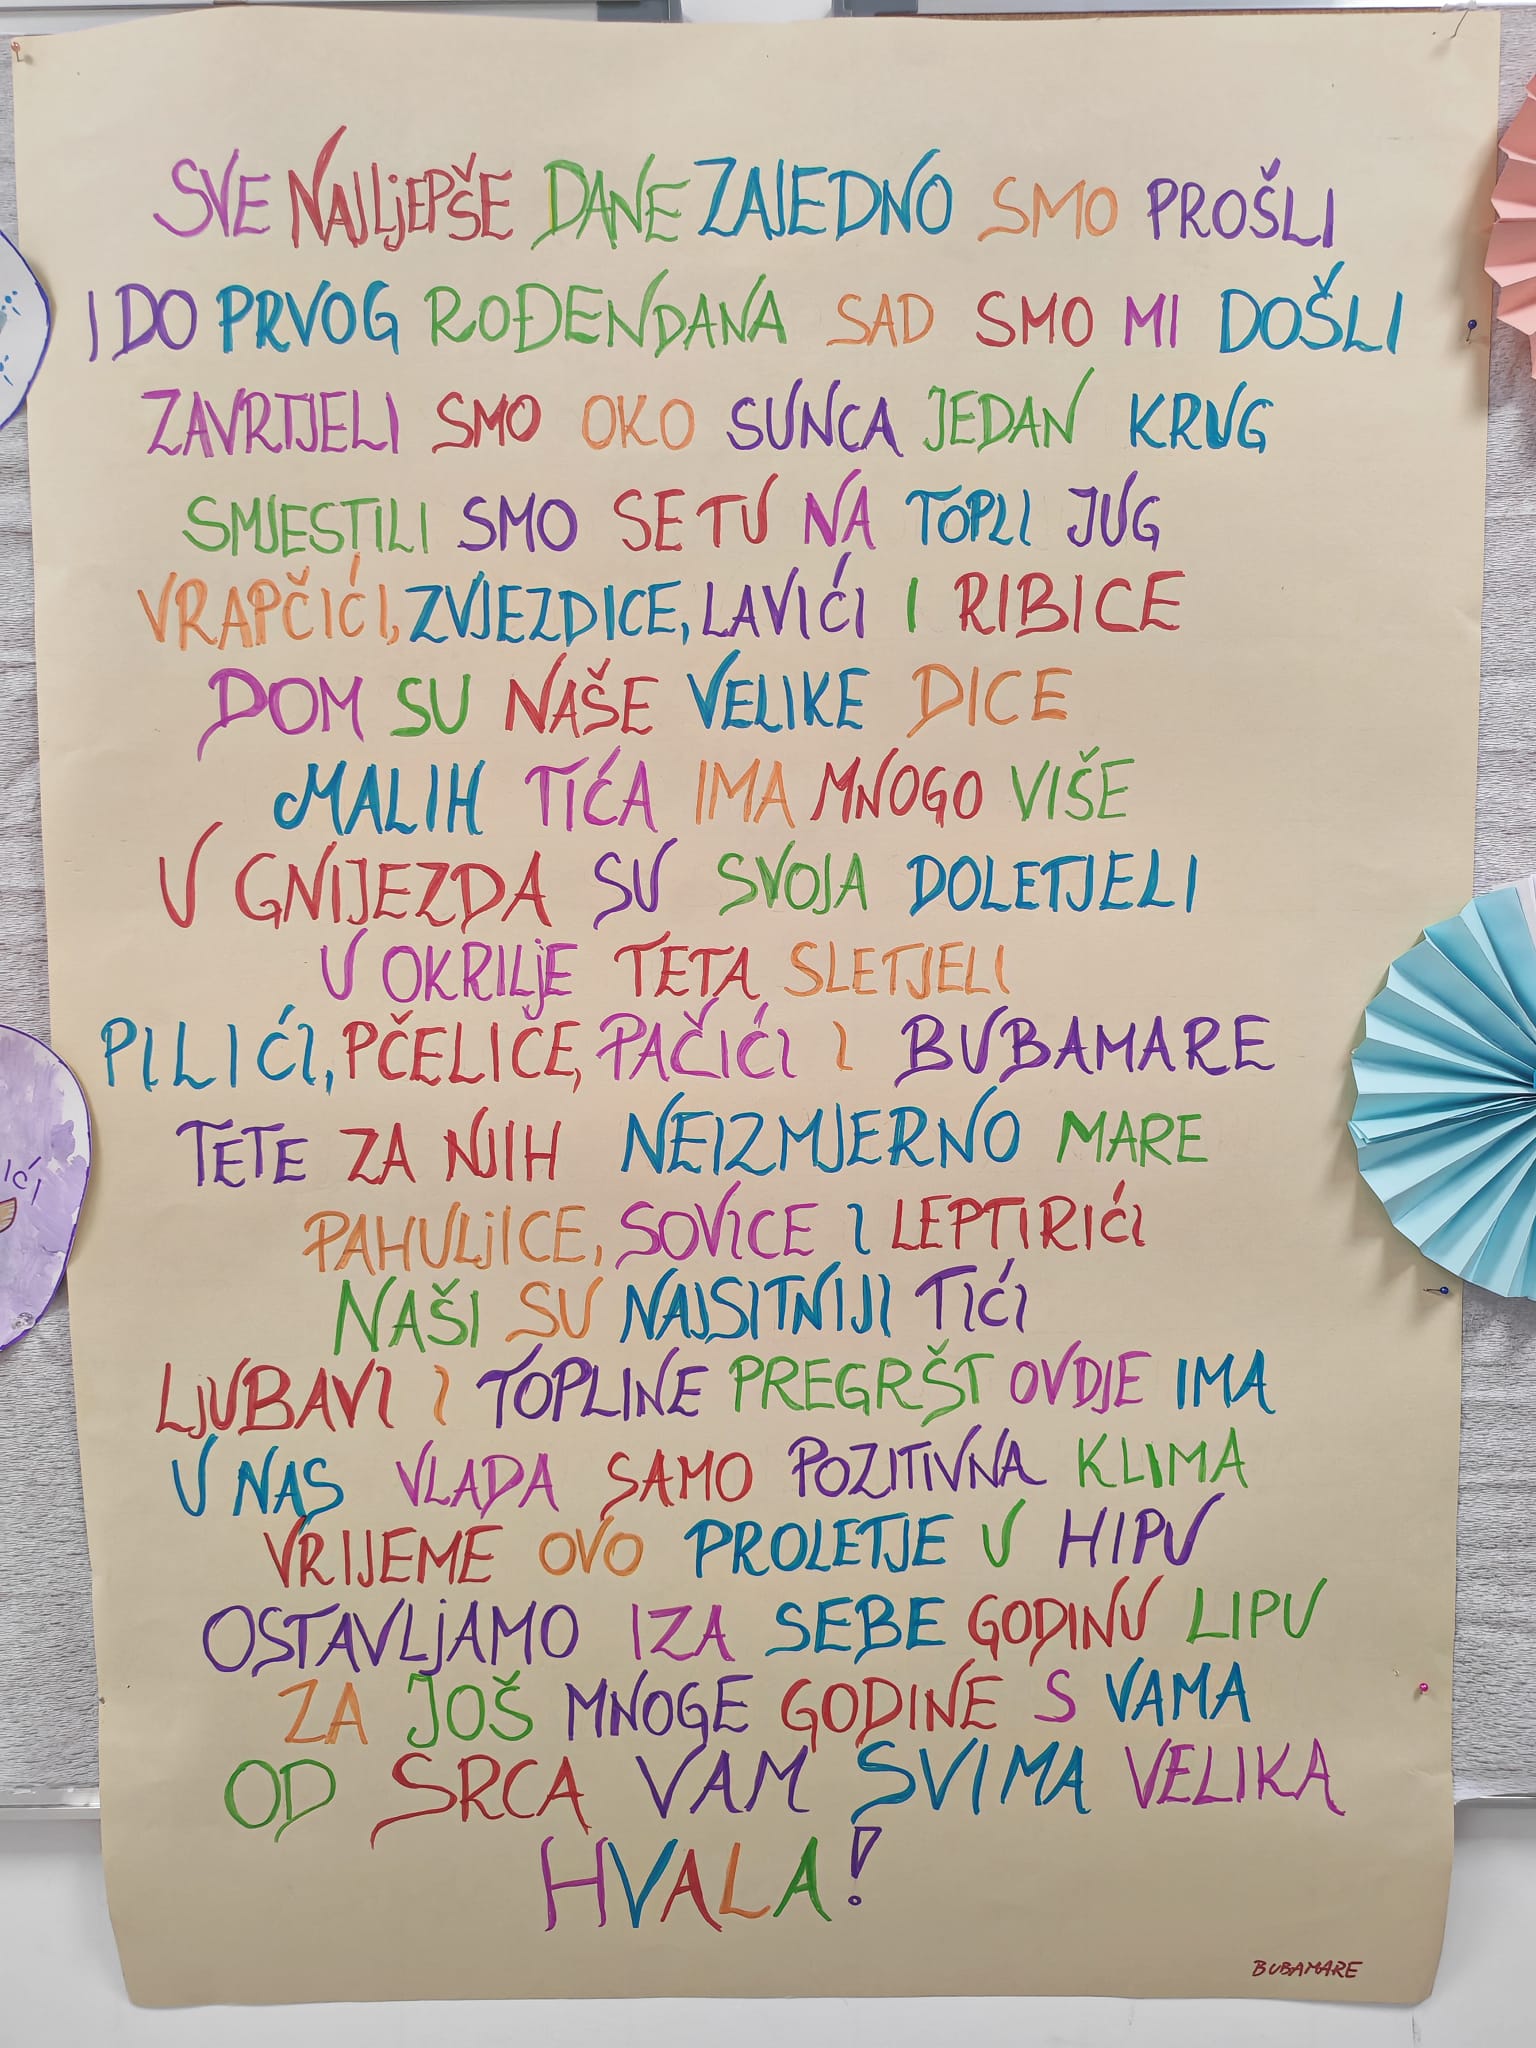 SVE NAJLJEPŠE DANE ZAJEDNO SMO PROŠLI
I DO PRVOG ROĐENDANA SAD SMO MI DOŠLI
ZAVRTJELI SMO OKO SUNCA JEDAN KRUG
SMJESTILI SMO SE TU NA TOPLI JUG
VRAPČIĆI, ZVJEZDICE, LAVIĆI I RIBICE
DOM SU NAŠE VELIKE DICE
MALIH TIĆA IMA MNOGO VIŠE
U GNIJEZDA SU SVOJA DOLETJELI
U OKRILJE TETA SLETJELI
PILIĆI, PČELICE, PAČIĆI I BUBAMARE
TETE ZA NJIH NEIZMJERNO MARE
PAHULJICE, SOVICE I LEPTIRIĆI
NAŠI SU NAJSITNIJI TIĆI
LJUBAVI I TOPLINE PREGRŠT OVDJE IMA
U NAS VLADA SAMO POZITIVNA KLIMA
VRIJEME OVO PROLETJE U HIPU
OSTAVLJAMO IZA SEBE GODINU LIPU
ZA JOŠ MNOGE GODINE S VAMA
OD SRCA VAM SVIMA VELIKA
HVALA!
BUBAMARE